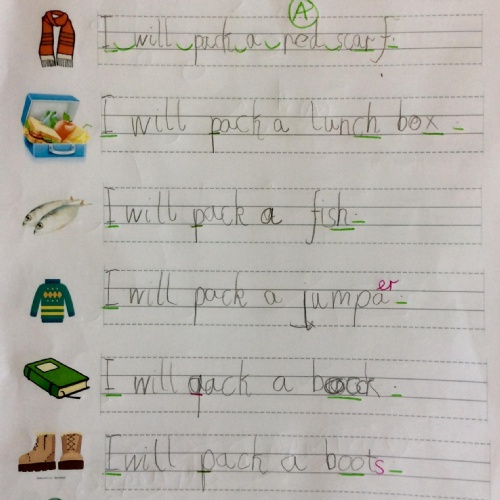 A
I will pack a red scarf.
I will pack a lunch box.
I will pack a fish.
er
I will pack a jumpa.
I will pack a book.
I will pack a boots.